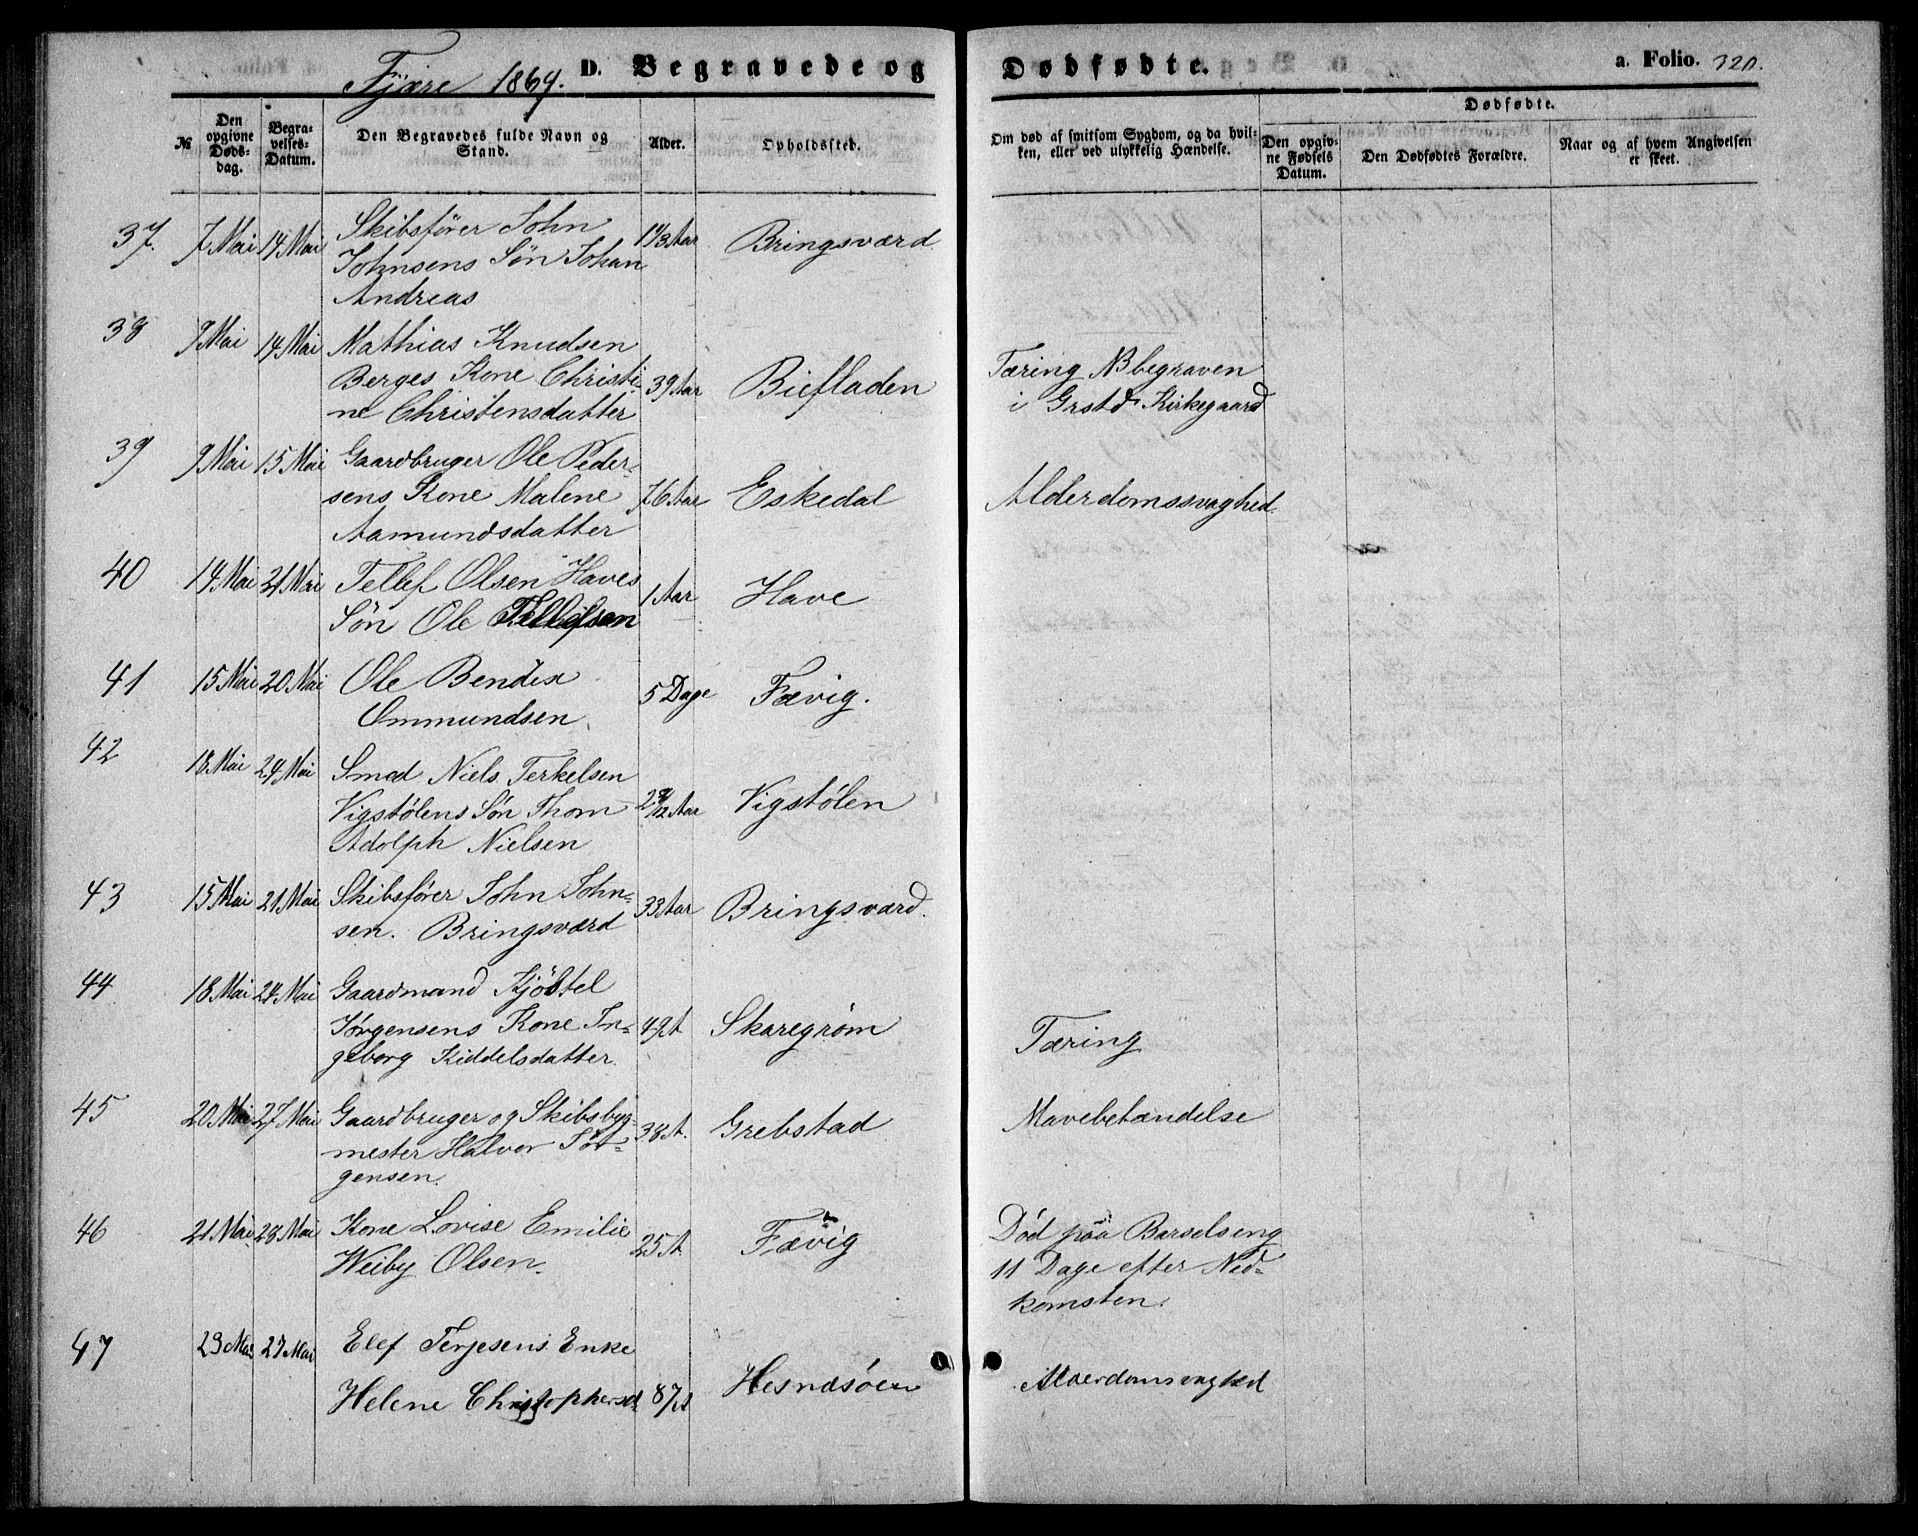 Fjære 1869. D. Begravede og Dødfødte. a. Folio. 320.
№ Den opgivne Døds-dag. Begra-velses-Datum. Den Begravedes fulde Navn og Stand. Alder. Opholdssted. Om død af smitsom Sygdom, og da hvil-ken, eller ved ulykkelig Hændelse. Dødfødte. Den opgiv-ne Fødsels Datum. Den Dødfødtes Forældre. Naar og af hvem Angivelsen er skeet.
37. 7 Mai 14 Mai Skibsfører John 1 1/3 Aar Bringsværd
Johnsens Søn Johan
Andreas
38 9 Mai 14 Mai Mathias Knudsen
Berges Kone Christi- 39 Aar Biefladen Tæring NB begraven
ne Christensdatter i Grstd Kirkegaard
39 9 Mai 15 Mai Gaardbruger Ole Peder-
sens Kone Malene 76 Aar Eskedal Alderdomssvaghed.
Aamundsdatter
40 14 Mai 21 Mai Tellef Olsen Haves 1 Aar Have
Søn Ole Tellefsen
41 15 Mai 20 Mai Ole Bendix 5 Dage Fævig.
Ommundsen
42 18 Mai 24 Mai Smed Niels Terkelsen
Vigstølens Søn Thom 2 /12 Aar Vigstølen
Adolph Nielsen
43 15 Mai 21 Mai Skibsfører John John- 33 Aar Bringsværd.
sen. Bringsværd
44 18 Mai 24 Mai Gaardmand Kjöstel
Jörgensens Kone In- 49 A Skaregrøm Tæring
geborg Kiddelsdatter.
45 20 Mai 27 Mai Gaardbruger og Skibsbyg- 38 A. Grebstad Mavebetændelse
mester Halvor Jör-
gensen.
46 21 Mai 28 Mai Kone Lovise Emilie 25 A. Fævig Död paa Barselseng
Weiby Olsen. 11 Dage efter Ned-
komsten.
47 23 Mai 27 Mai Elef Terjesens Enke
Helene Christophersd. 87 A Hesnæsöen Alderdomsvaghed